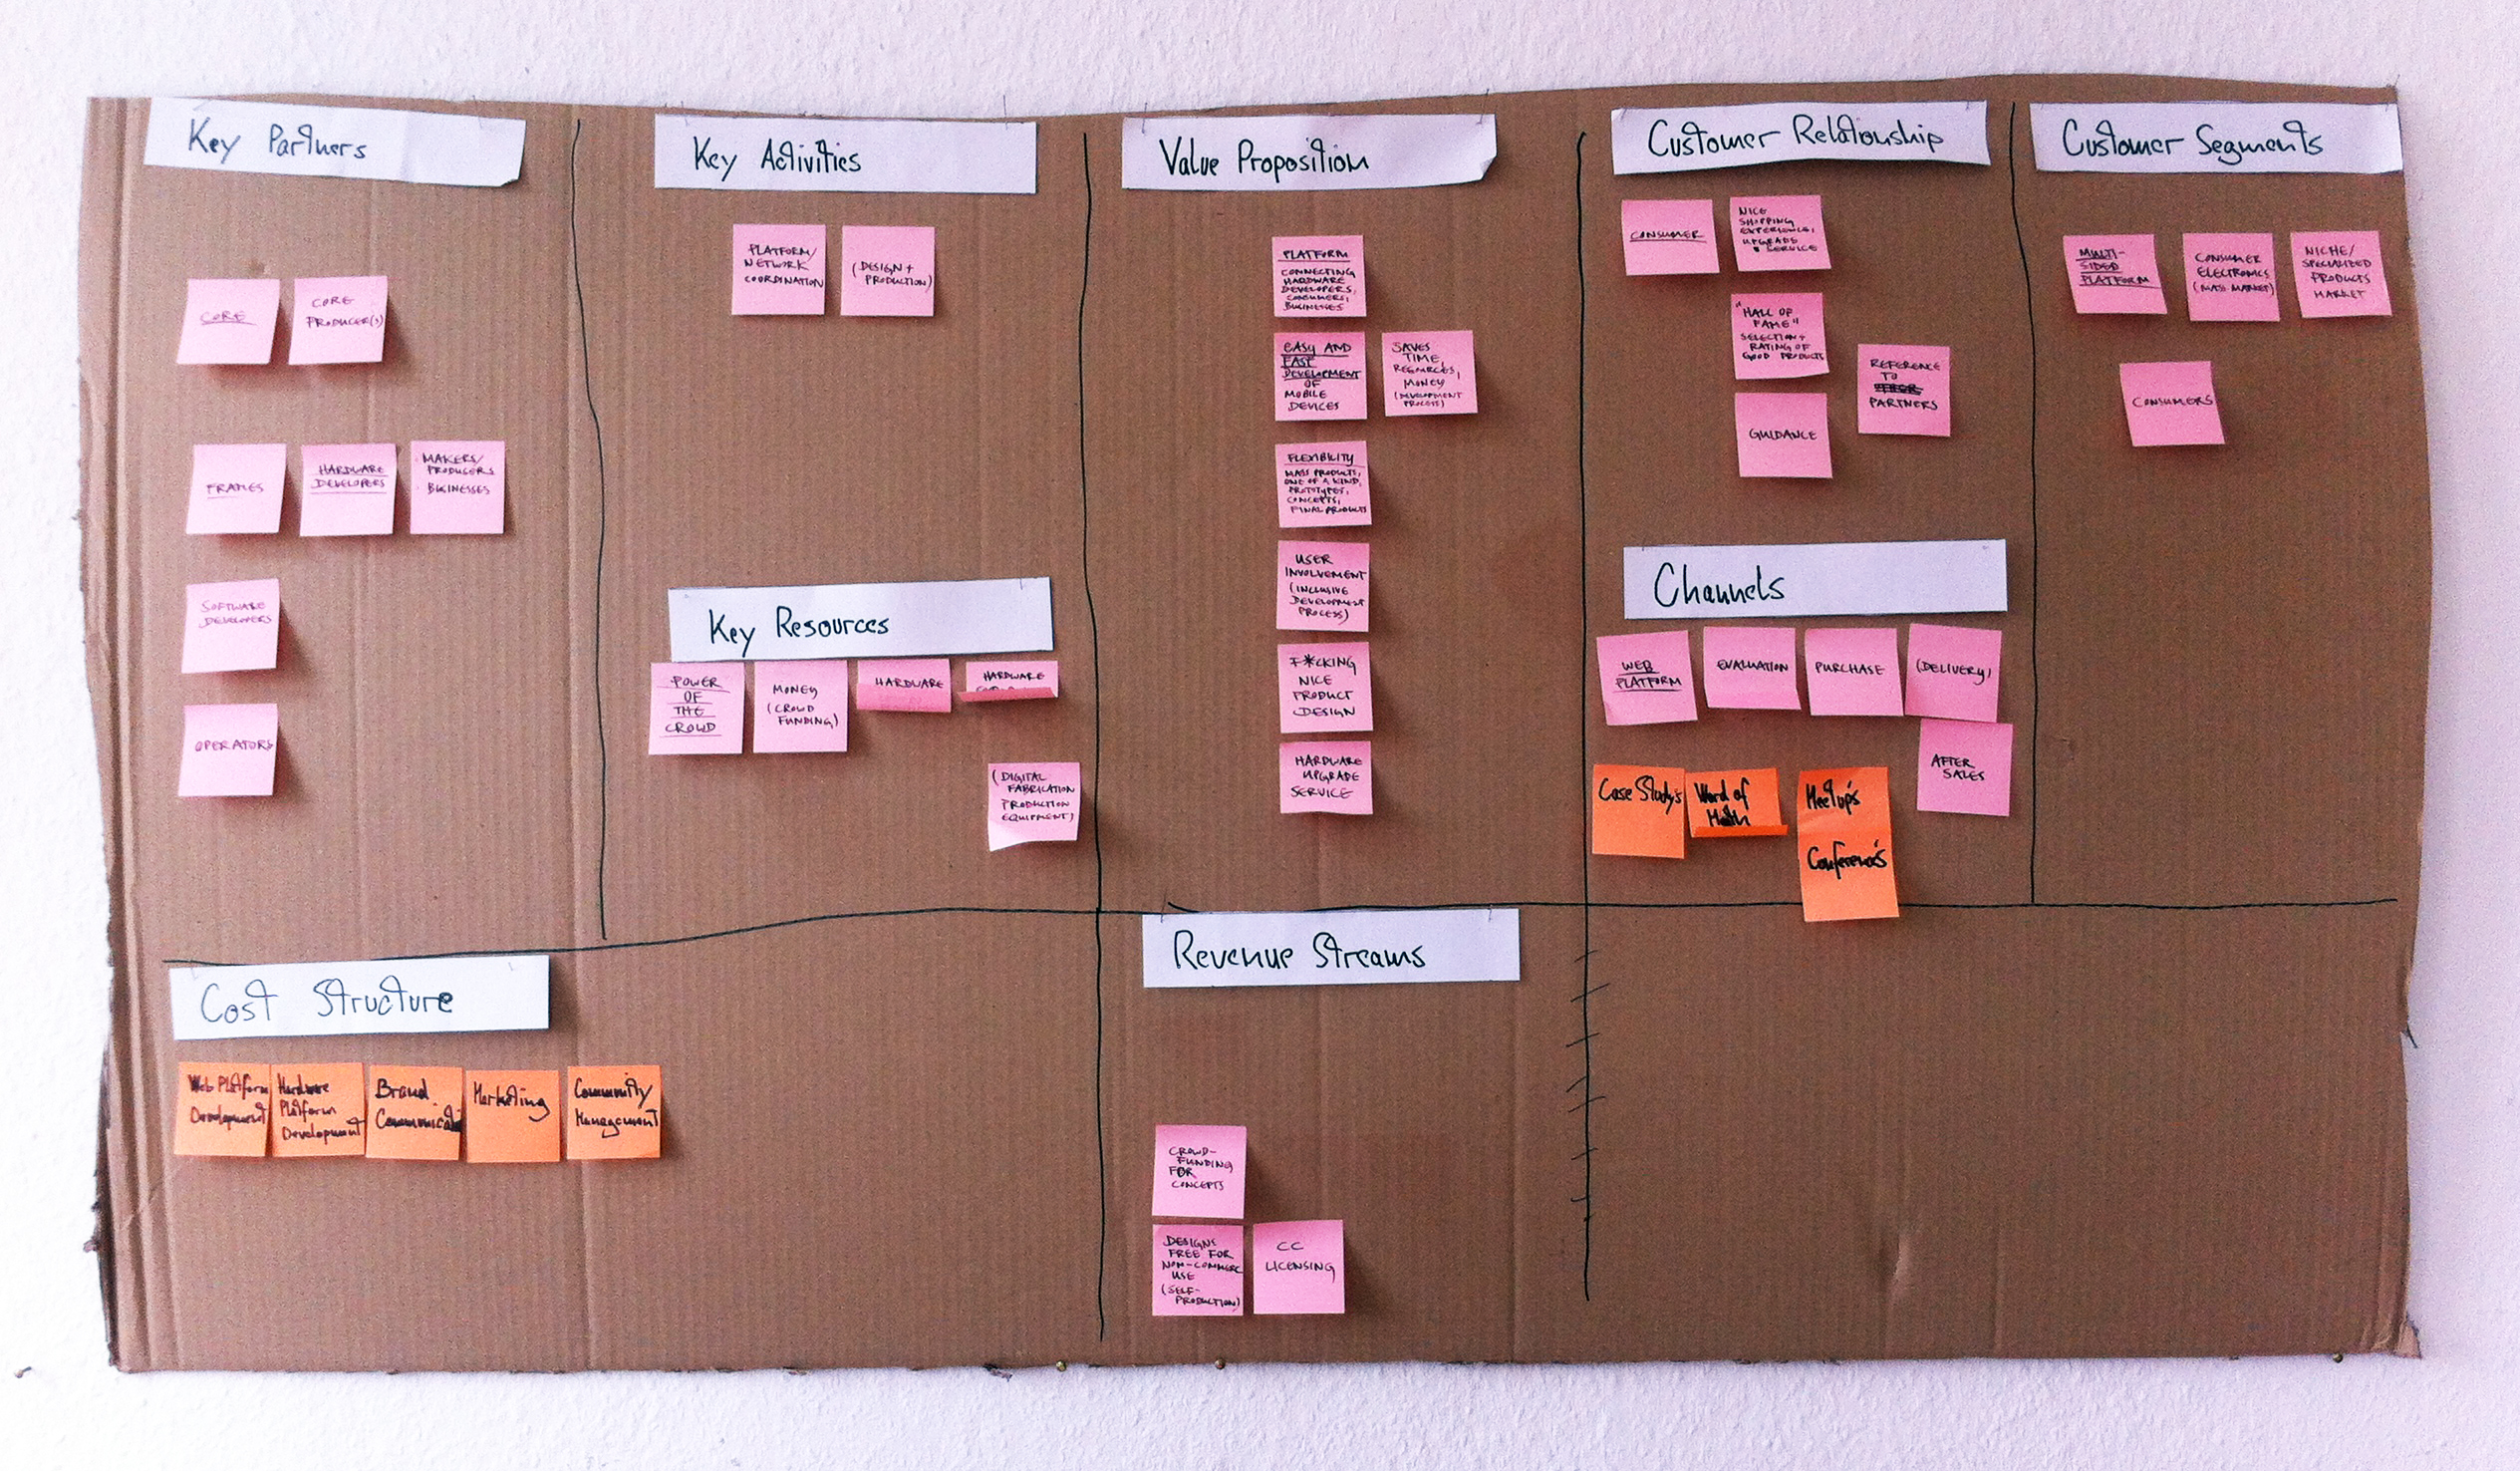 Key Partners
CORE
CORE
PRODUCER(S)
FRAMES
HARDWARE
DEVELOPERS
MAKERS/
PRODUCERS
BUSINESSES
SOFTWARE
DEVELOPERS
OPERATORS
Key Activities
PLATFORM/
NETWORK
COORDINATION
(DESIGN +
PRODUCTION)
Key Resources
POWER
OF
THE
CROWD
MONEY
(CROWD
FUNDING)
HARDWARE
HARDWARE
(DIGITAL
FABRICATION
PRODUCTION
EQUIPMENT)
Value Proposition
PLATFORM
CONNECTING
HARDWARE
DEVELOPERS,
CONSUMERS,
BUSINESSES
EASY AND
FAST
DEVELOPMENT
OF
MOBILE
DEVICES
SAVES
TIME,
RESOURCES,
MONEY
(DEVELOPMENT
PROCESS)
FLEXIBILITY
MASS PRODUCTS,
ONE OF A KIND,
PROTOTYPES,
CONCEPTS,
FINAL PRODUCTS
USER
INVOLVEMENT
(INCLUSIVE
DEVELOPMENT
PROCESS)
F*CKING
NICE
PRODUCT
DESIGN
HARDWARE
UPGRADE
SERVICE
Customer Relationship
CONSUMER
NICE
SHOPPING
EXPERIENCE,
UPGRADE
SERVICE
"HALL OF
FAME"
SELECTION +
RATING OF
GOOD PRODUCTS
GUIDANCE
REFERENCE
TO
PARTNERS
Channels
WEB
PLATFORM
EVALUATION
PURCHASE
(DELIVERY)
AFTER
SALES
Case Study's
Word of
Meetup's
Conference's
Customer Segments
MULTI-
SIDED
PLATFORM
CONSUMER
ELECTRONICS
(MASS MARKET)
NICHE/
SPECIALIZED
PRODUCTS
MARKET
CONSUMERS
Cost Structure
Web Platform
Development
Hardware
Platform
Development
Brand
Marketing
Community
Management
Revenue Streams
CROWD-
FUNDING
FOR
CONCEPTS
DESIGNS
FREE FOR
NON-COMMERC
USE
(SELF-
PRODUCTION)
CC
LICENSING